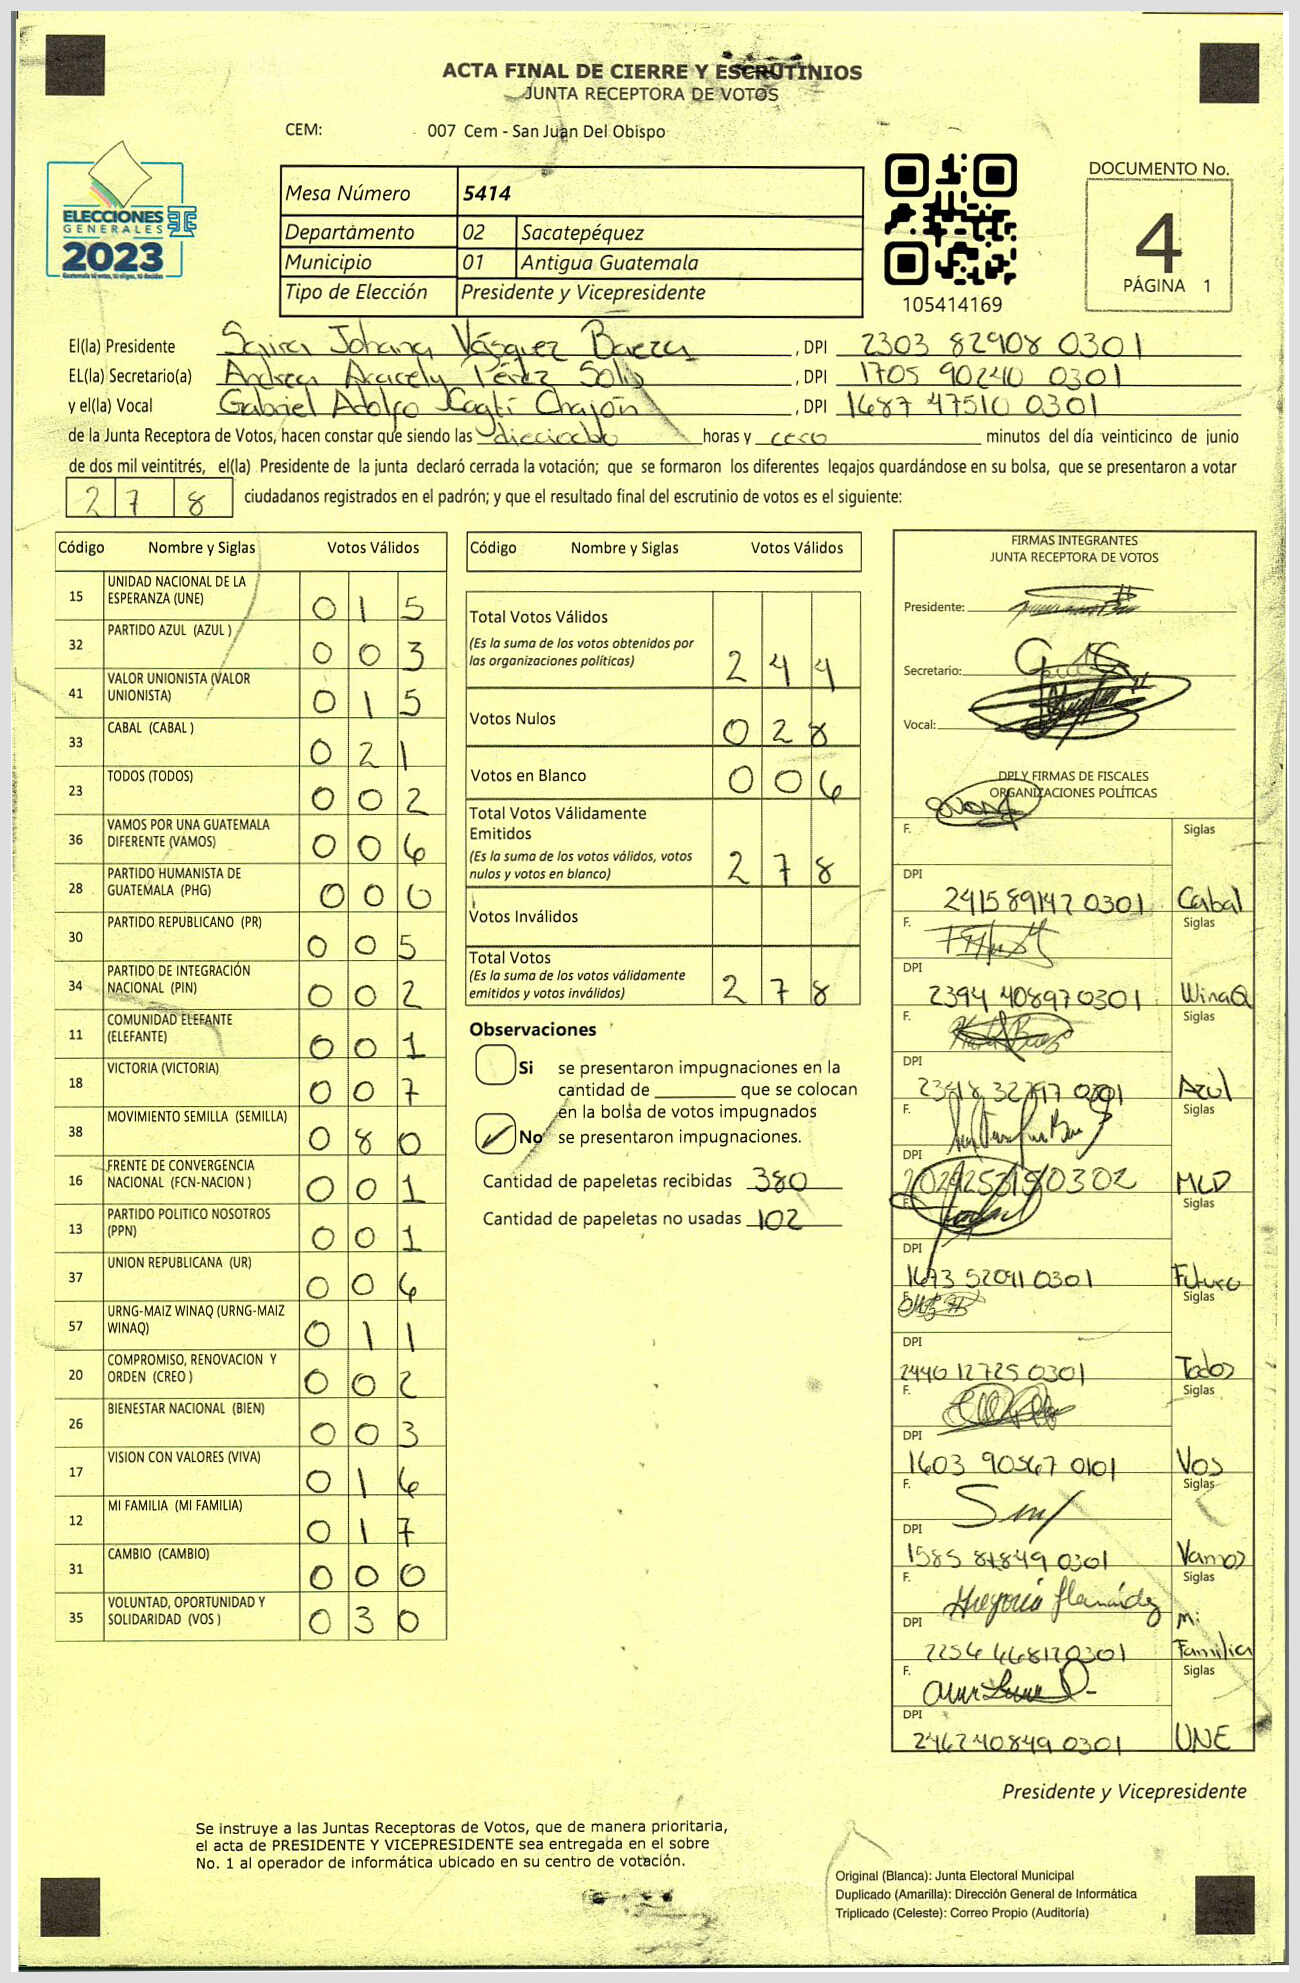 ACTA FINAL DE CIERRE Y ESCRUTINIOS
JUNTA RECEPTORA DE VOTOS
CEM: 007 Cem - San Juan Del Obispo
ELECCIONES
GENERALES
2023
Mesa Número 5414
Departamento 02 Sacatepéquez
Municipio 01 Antigua Guatemala
Tipo de Elección Presidente y Vicepresidente
105414169
DOCUMENTO No.
4
PÁGINA 1
El(la) Presidente Saira Johana Vásquez Baeza, DPI 2303 82908 0301
EL(la) Secretario(a) Andrea Aracely Pérez Solis, DPI 1705 90240 0301
y el(la) Vocal Gabriel Adolfo Chajón, DPI 1687 47510 0301
de la Junta Receptora de Votos, hacen constar que siendo las dieciocho horas y cero minutos del día veinticinco de junio
de dos mil veintitrés, el(la) Presidente de la junta declaró cerrada la votación; que se formaron los diferentes legajos quardándose en su bolsa, que se presentaron a votar
278 ciudadanos registrados en el padrón; y que el resultado final del escrutinio de votos es el siguiente:
Código Nombre y Siglas Votos Válidos
15 UNIDAD NACIONAL DE LA ESPERANZA (UNE) 015
32 PARTIDO AZUL (AZUL ) 003
41 VALOR UNIONISTA (VALOR UNIONISTA) 015
33 CABAL (CABAL ) 021
23 TODOS (TODOS) 002
36 VAMOS POR UNA GUATEMALA DIFERENTE (VAMOS) 006
28 PARTIDO HUMANISTA DE GUATEMALA (PHG) 000
30 PARTIDO REPUBLICANO (PR) 005
34 PARTIDO DE INTEGRACIÓN NACIONAL (PIN) 002
11 COMUNIDAD ELEFANTE (ELEFANTE) 001
18 VICTORIA (VICTORIA) 007
38 MOVIMIENTO SEMILLA (SEMILLA) 080
16 FRENTE DE CONVERGENCIA NACIONAL (FCN-NACION ) 001
13 PARTIDO POLITICO NOSOTROS (PPN) 001
37 UNION REPUBLICANA (UR) 006
57 URNG-MAIZ WINAQ (URNG-MAIZ WINAQ) 011
20 COMPROMISO, RENOVACION Y ORDEN (CREO ) 002
26 BIENESTAR NACIONAL (BIEN) 003
17 VISION CON VALORES (VIVA) 016
12 MI FAMILIA (MI FAMILIA) 017
31 CAMBIO (CAMBIO) 000
35 VOLUNTAD, OPORTUNIDAD Y SOLIDARIDAD (VOS ) 030
Código Nombre y Siglas Votos Válidos
Total Votos Válidos 244
(Es la suma de los votos obtenidos por
las organizaciones políticas)
Votos Nulos 028
Votos en Blanco 006
Total Votos Válidamente
Emitidos 278
(Es la suma de los votos válidos, votos
nulos y votos en blanco)
Votos Inválidos
Total Votos 278
(Es la suma de los votos válidamente
emitidos y votos inválidos)
Observaciones
Si se presentaron impugnaciones en la
cantidad de ________ que se colocan
en la bolsa de votos impugnados
No se presentaron impugnaciones.
Cantidad de papeletas recibidas 380
Cantidad de papeletas no usadas 102
FIRMAS INTEGRANTES
JUNTA RECEPTORA DE VOTOS
Presidente:
Secretario:
Vocal:
DPI Y FIRMAS DE FISCALES
ORGANIZACIONES POLÍTICAS
F. Siglas
DPI 2415 89147 0301 Cabal
F. Siglas
DPI 2394 40897 0301 WinaQ
F. Siglas
DPI 0301 Azul
F. Siglas
DPI 0302 MLD
F. Siglas
DPI 1673 52091 0301 Futuro
F. Siglas
DPI 2440 12725 0301 Todos
F. Siglas
DPI 1603 90567 0101 Vos
F. Siglas
DPI 1585 81849 0301 Vamos
F. Gregoria Hernández Siglas
DPI 2254 46812 0301 Mi Familia
F. Siglas
DPI 2462 40849 0301 UNE
Presidente y Vicepresidente
Se instruye a las Juntas Receptoras de Votos, que de manera prioritaria,
el acta de PRESIDENTE Y VICEPRESIDENTE sea entregada en el sobre
No. 1 al operador de informática ubicado en su centro de votación.
Original (Blanca): Junta Electoral Municipal
Duplicado (Amarilla): Dirección General de Informática
Triplicado (Celeste): Correo Propio (Auditoría)